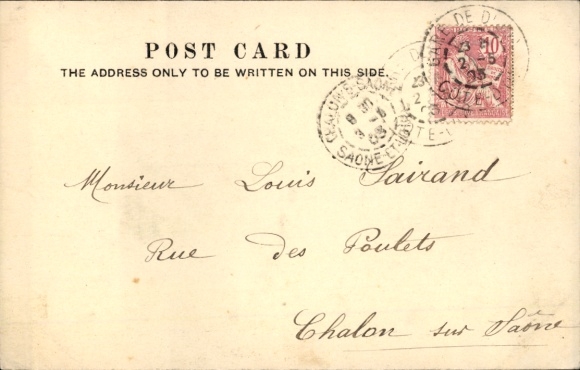 POST CARD
THE ADDRESS ONLY TO BE WRITTEN ON THIS SIDE.
GARE DE
10
CHALON-S-SAONE
SAONE-ET-LOIRE
Monsieur Louis Sairand
Rue des Poulets
Chalon sur Saône